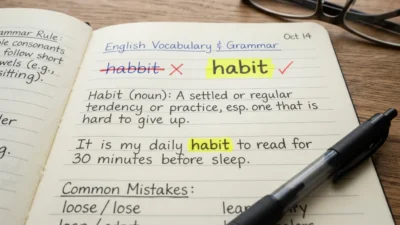 Grammar Rule:
consonants
follow short
(e.g.,
sitting).
Oct 14
English Vocabulary & Grammar
habbit ✗ habit ✓
Habit (noun): A settled or regular
tendency or practice, esp. one that is
hard to give up.
It is my daily habit to read for
30 minutes before sleep.
Common Mistakes:
loose / lose